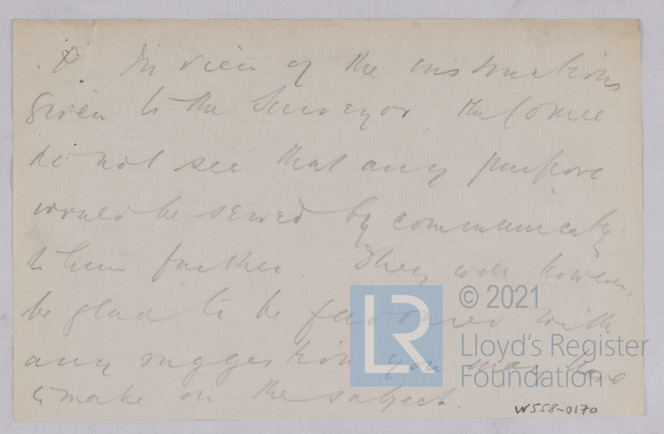 X In view of the instructions
given to the Surveyor, the Comee
do not see that any purpose
would be served by communicatg
to him further. They will however,
be glad to be favoured with
any suggestion you may have
to make on the subject.
© 2021
LR
Lloyd's Register
Foundation
W558-0170